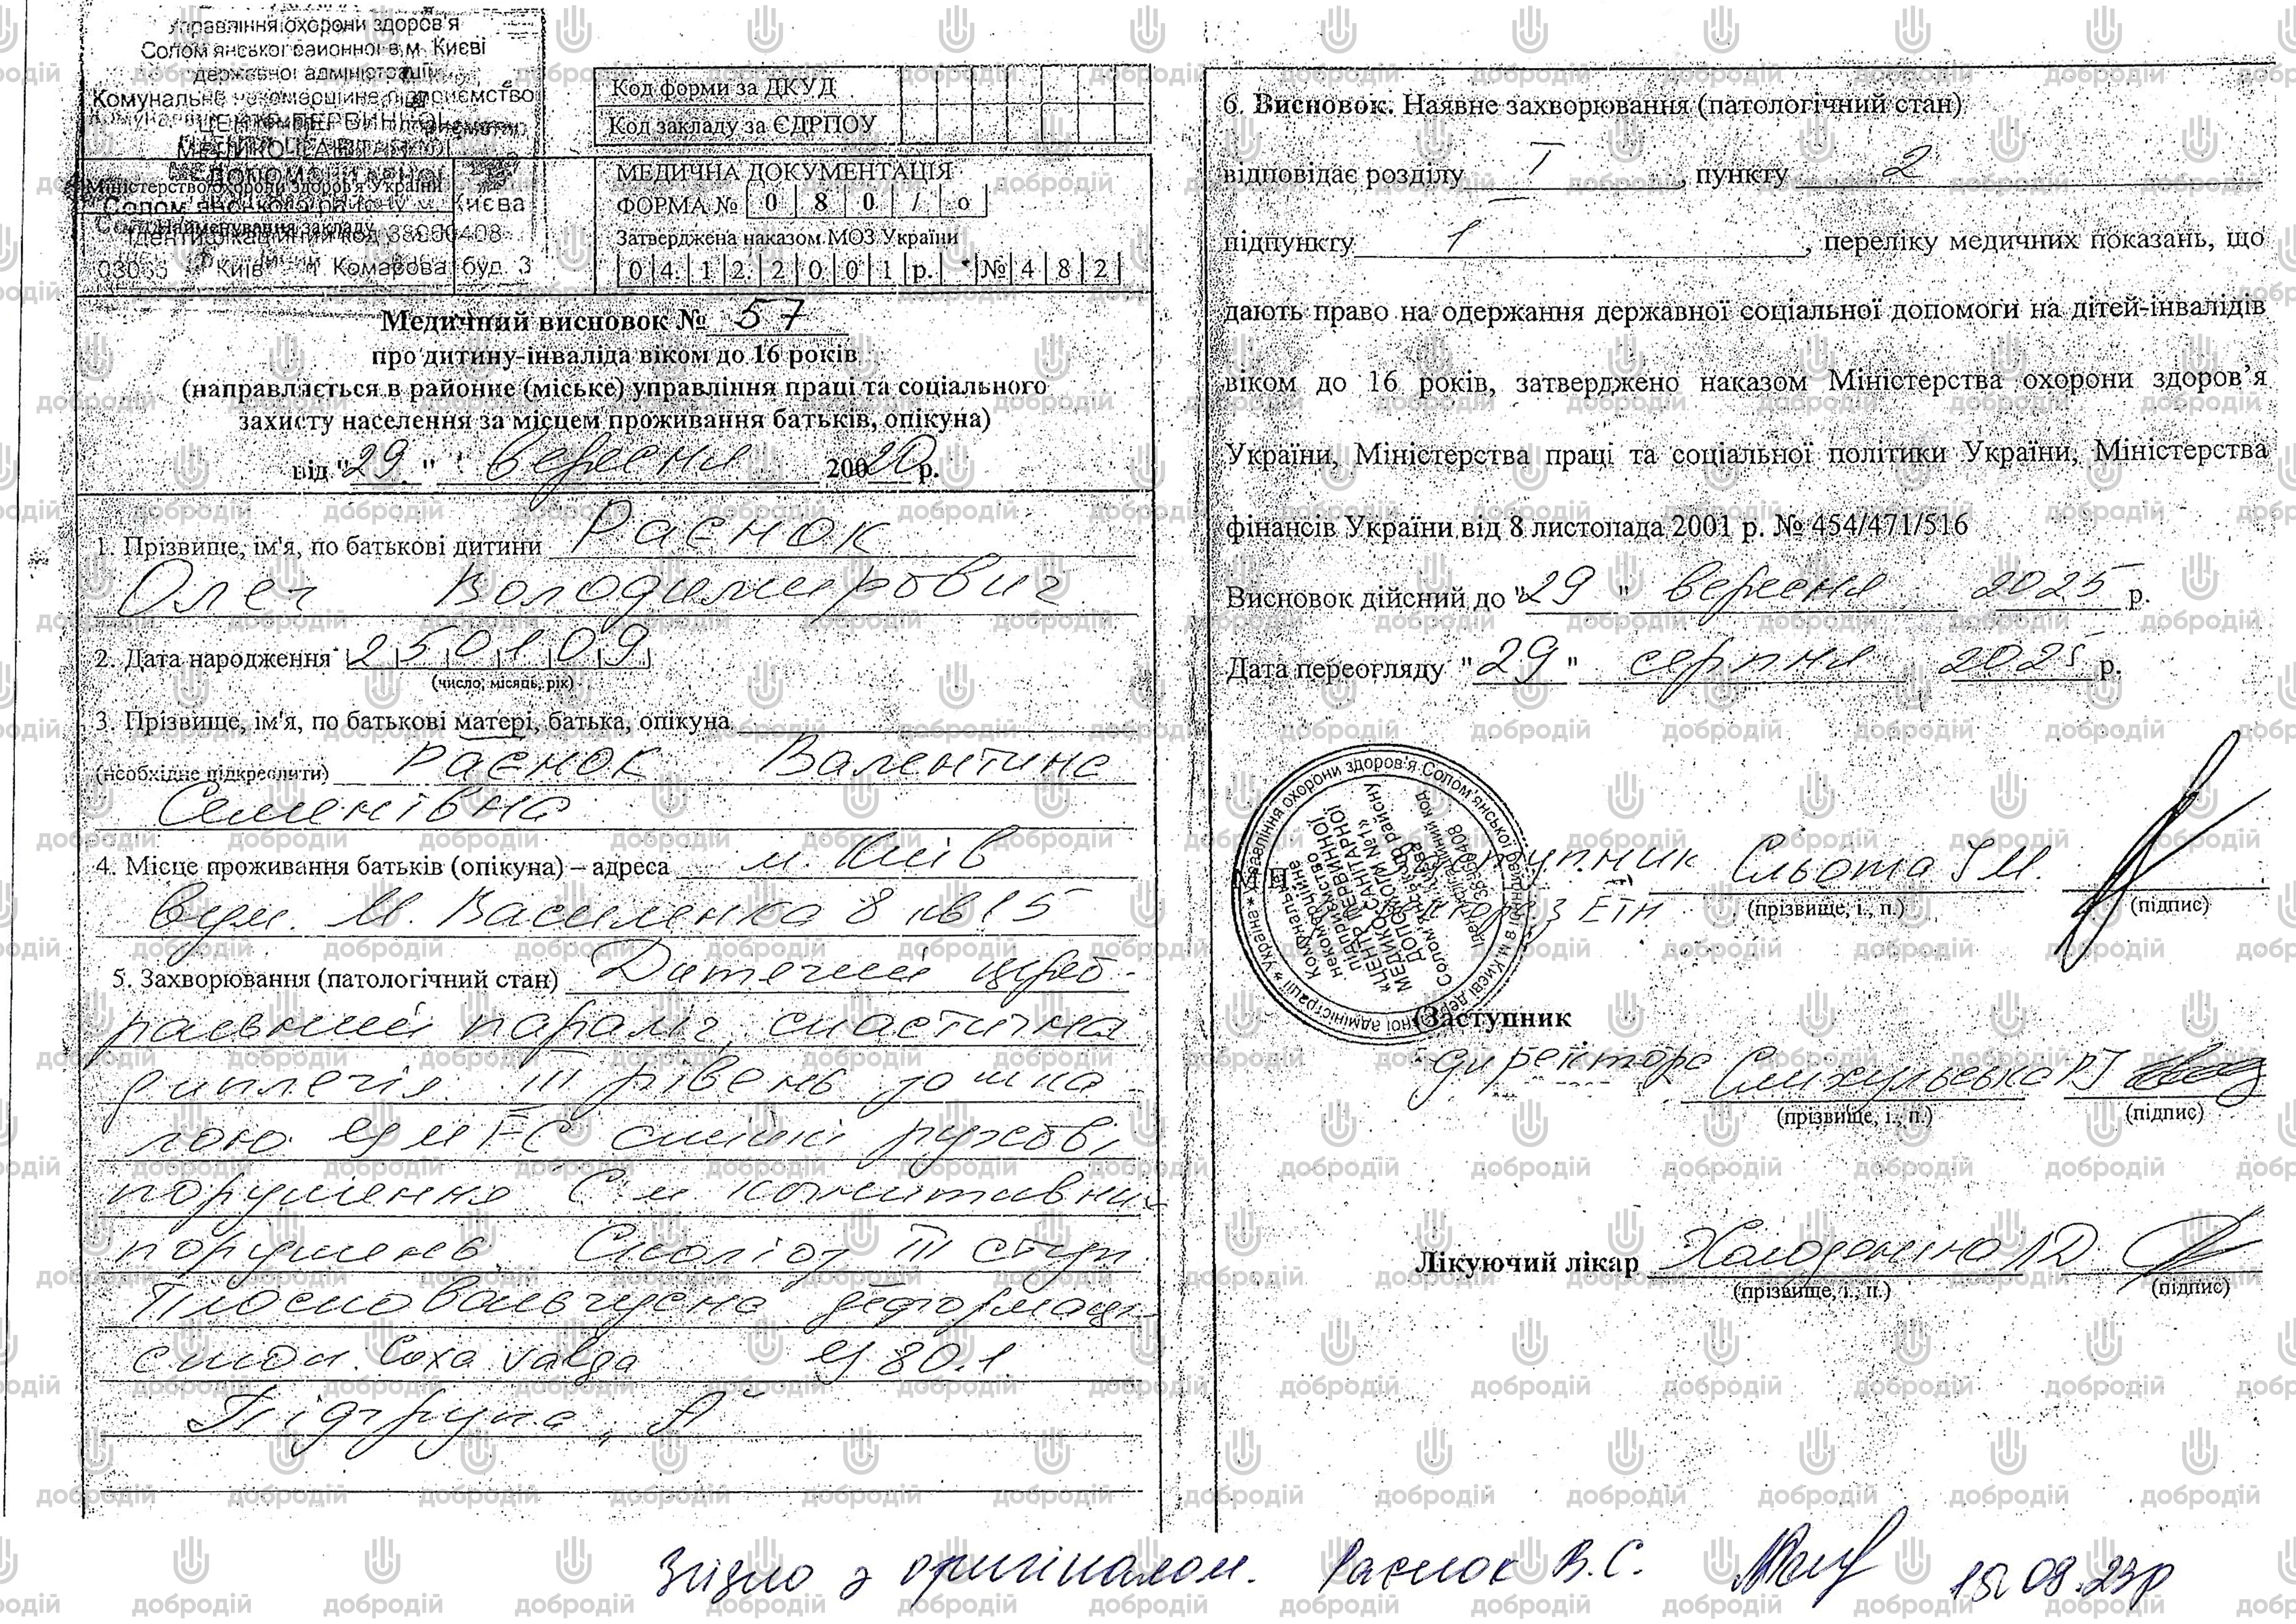 Управління охорони здоров'я
Солом'янської районної в м. Києві
державної адміністрації
Комунальне некомерційне підприємство
ЦЕНТР ПЕРВИННОЇ
МЕДИКО-САНІТАРНОЇ
ДОПОМОГИ
Міністерство охорони здоров'я України
Солом'янського району м. Києва
Найменування закладу
Ідентифікаційний код 38960408
Київ Комарова буд. 3
Код форми за ДКУД
Код закладу за ЄДРПОУ
МЕДИЧНА ДОКУМЕНТАЦІЯ
ФОРМА № 0 8 0 / о
Затверджена наказом МОЗ України
0 4. 1 2. 2 0 0 1 р. № 4 8 2
Медичний висновок № 57
про дитину-інваліда віком до 16 років
(направляється в районне (міське) управління праці та соціального
захисту населення за місцем проживання батьків, опікуна)
від "29" вересня 20020 р.
1. Прізвище, ім'я, по батькові дитини Раєнок
Олег Володимирович
2. Дата народження 2 5 0 1 0 9
(число, місяць, рік)
3. Прізвище, ім'я, по батькові матері, батька, опікуна
(необхідне підкреслити) Раєнок Валентина
Семенівна
4. Місце проживання батьків (опікуна) – адреса м. Київ
вул. М. Василенка 8 кв 15
5. Захворювання (патологічний стан) Дитячий цереб-
ральний параліч, спастична
диплегія. III рівень за шка-
лою GMFCS
порушення когнітивних
порушень. Сколіоз III ступ.
Плосковальгусна деформація
стоп. Coxa valga G 80.1
Підгрупа „А"
6. Висновок. Наявне захворювання (патологічний стан)
відповідає розділу I, пункту 2
підпункту 1, переліку медичних показань, що
дають право на одержання державної соціальної допомоги на дітей-інвалідів
віком до 16 років, затверджено наказом Міністерства охорони здоров'я
України, Міністерства праці та соціальної політики України, Міністерства
фінансів України від 8 листопада 2001 р. № 454/471/516
Висновок дійсний до "29" вересня 2025 р.
Дата переогляду "29" серпня 2025 р.
М.П. Заступник Сльота І М.
(прізвище, і., п.) (підпис)
(Заступник
директора
(прізвище, і., п.) (підпис)
Лікуючий лікар
(прізвище, і., п.) (підпис)
Згідно з оригіналом. Раєнок В.С. 15.09.23р
добродій